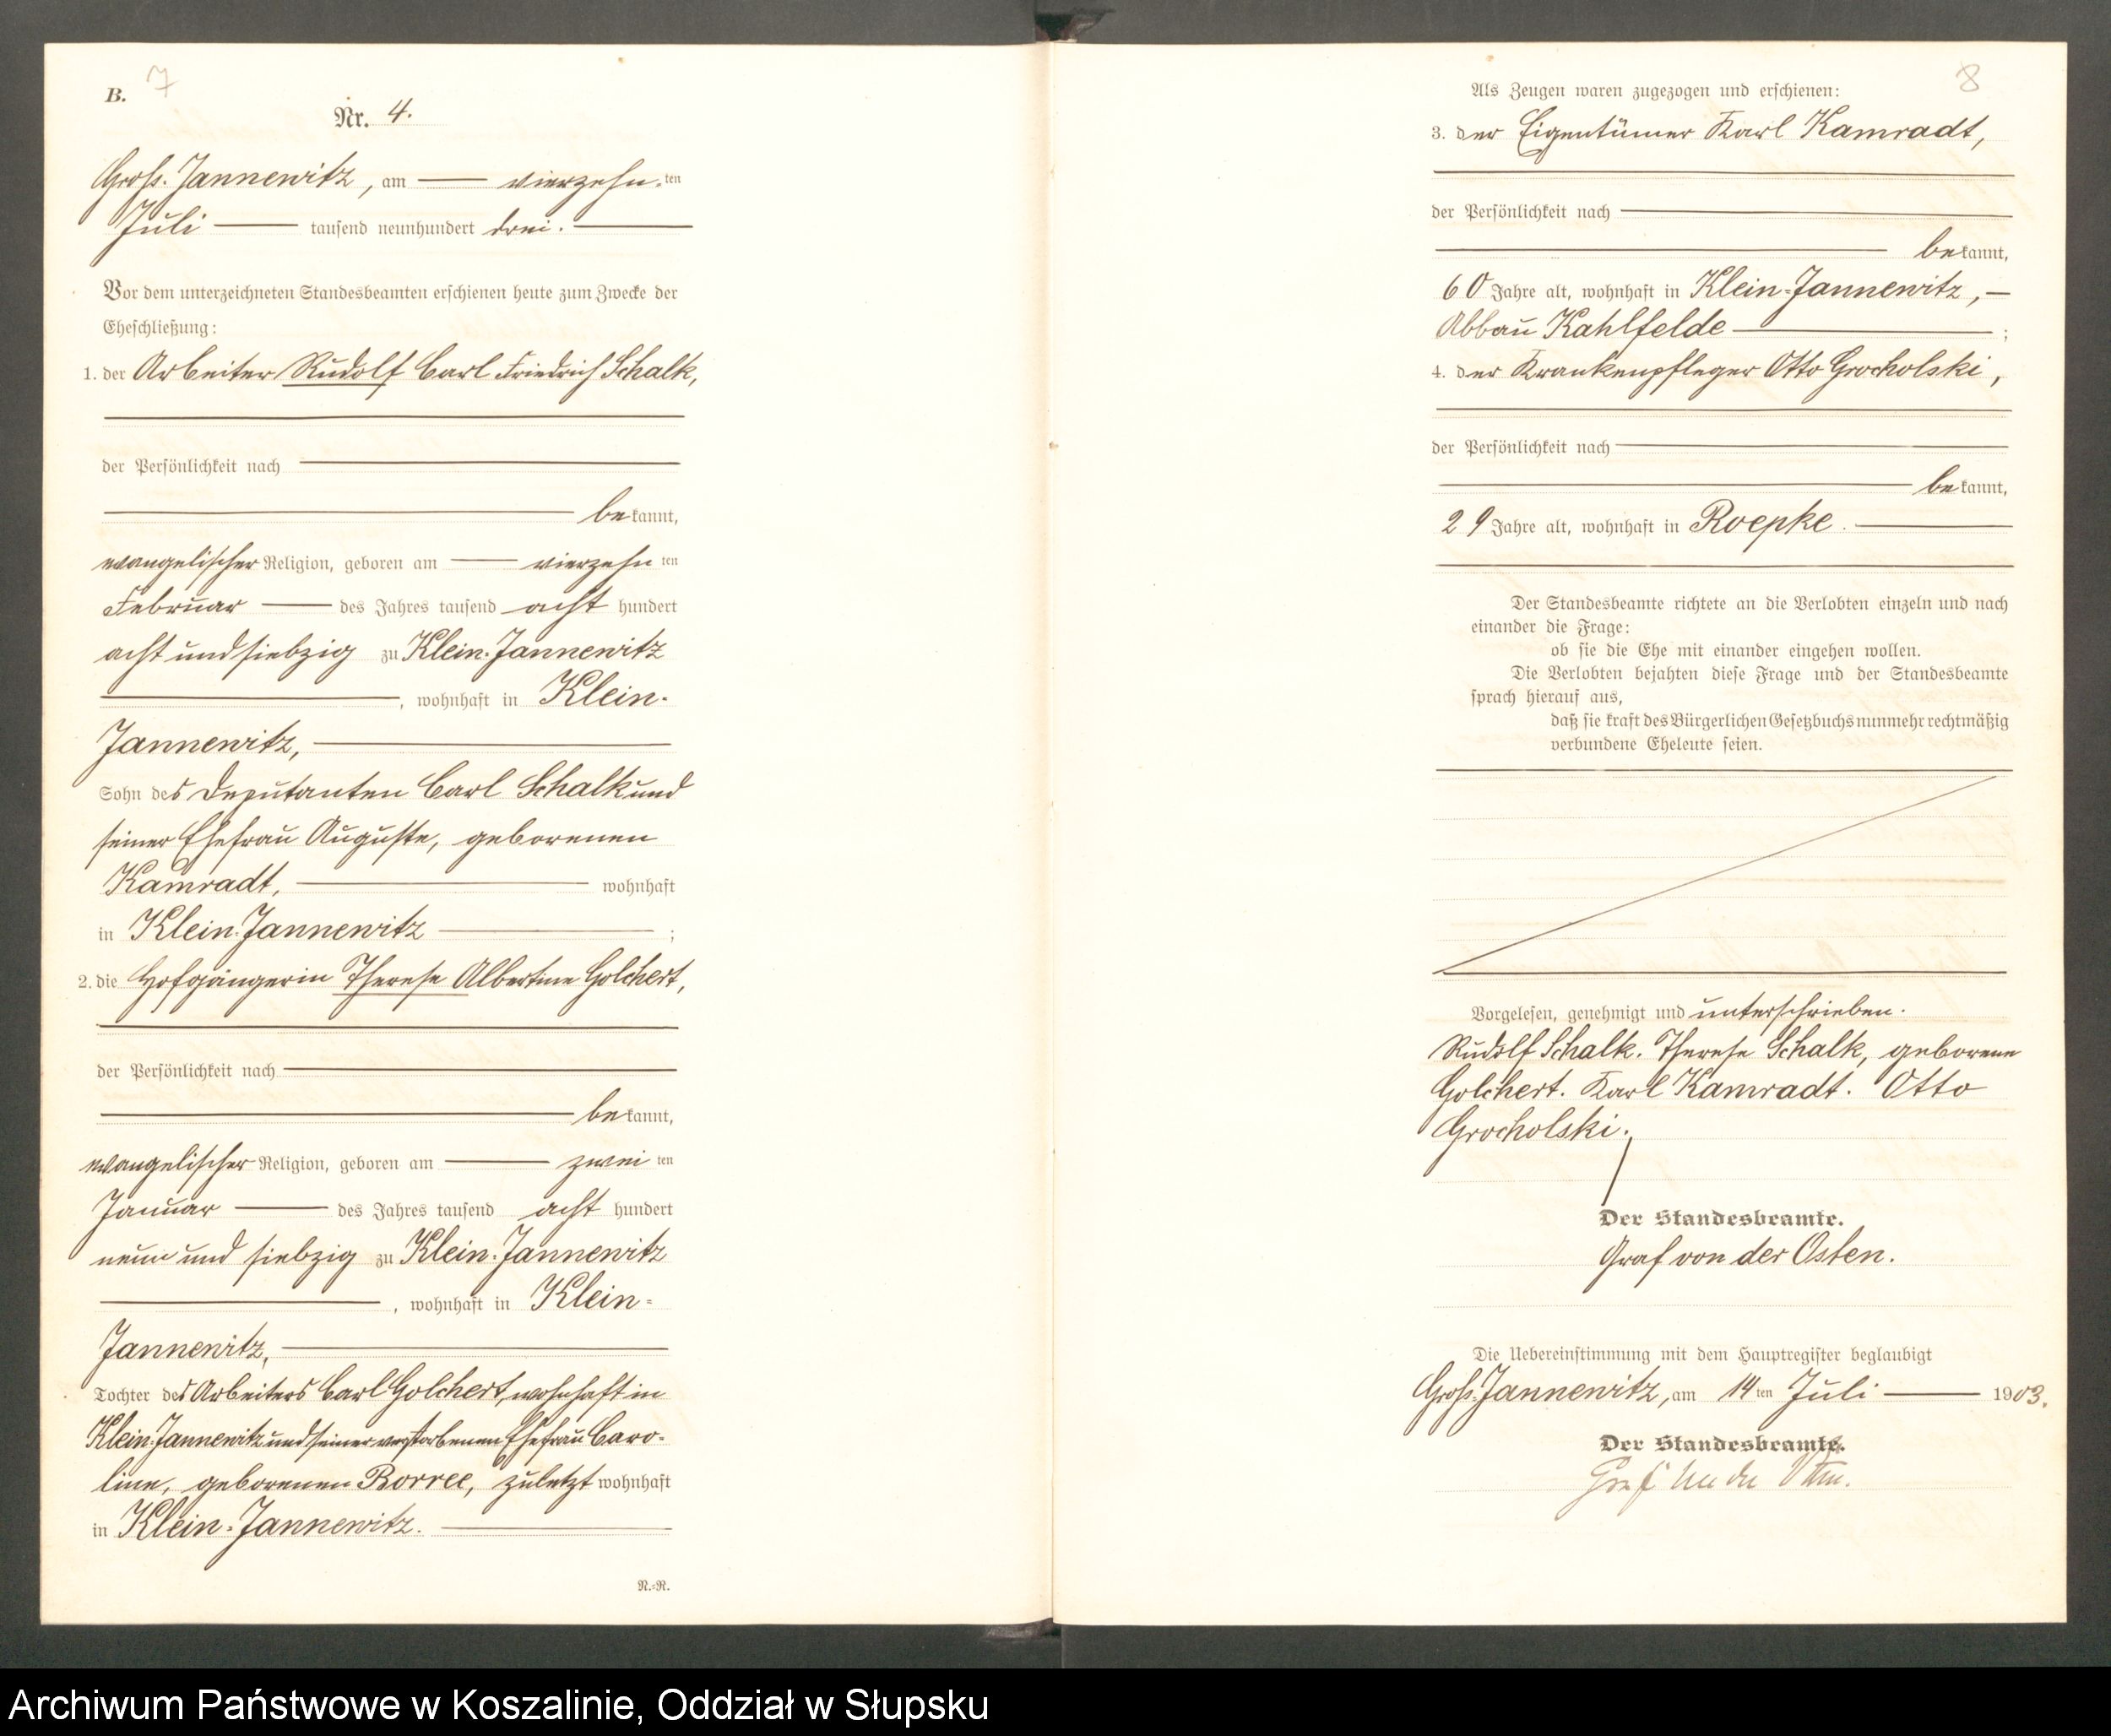 B.
7
Nr. 4.
Groß-Jannewitz, am vierzehnten
Juli tausend neunhundert drei.
Vor dem unterzeichneten Standesbeamten erschienen heute zum Zwecke der
Eheschließung:
1. der Arbeiter Rudolf Carl Friedrich Schalk,
der Persönlichkeit nach
bekannt,
evangelischer Religion, geboren am vierzehnten
Februar des Jahres tausend acht hundert
acht und siebzig zu Klein-Jannewitz
, wohnhaft in Klein-
Jannewitz,
Sohn des Deputanten Carl Schalk und
seiner Ehefrau Auguste, geborenen
Kamradt, wohnhaft
in Klein-Jannewitz ;
2. die Hofgängerin Therese Albertine Golchert,
der Persönlichkeit nach
bekannt,
evangelischer Religion, geboren am zweiten
Januar des Jahres tausend acht hundert
neun und siebzig zu Klein-Jannewitz
, wohnhaft in Klein-
Jannewitz,
Tochter des Arbeiters Carl Golchert, wohnhaft in
Klein-Jannewitz und seiner verstorbenen Ehefrau Caro-
line, geborenen Borree, zuletzt wohnhaft
in Klein-Jannewitz.
N.-R.
8
Als Zeugen waren zugezogen und erschienen:
3. der Eigentümer Karl Kamradt,
der Persönlichkeit nach
bekannt,
60 Jahre alt, wohnhaft in Klein-Jannewitz, –
Abbau Kahlfelde ;
4. der Krankenpfleger Otto Grocholski,
der Persönlichkeit nach
bekannt,
29 Jahre alt, wohnhaft in Roepke.
Der Standesbeamte richtete an die Verlobten einzeln und nach
einander die Frage:
ob sie die Ehe mit einander eingehen wollen.
Die Verlobten bejahten diese Frage und der Standesbeamte
sprach hierauf aus,
daß sie kraft des Bürgerlichen Gesetzbuchs nunmehr rechtmäßig
verbundene Eheleute seien.
Vorgelesen, genehmigt und unterschrieben.
Rudolf Schalk. Therese Schalk, geborene
Golchert. Karl Kamradt. Otto
Grocholski.
Der Standesbeamte.
Graf von der Osten.
Die Uebereinstimmung mit dem Hauptregister beglaubigt
Groß-Jannewitz, am 14ten Juli 1903.
Der Standesbeamte.
Graf von der Osten.
Archiwum Państwowe w Koszalinie, Oddział w Słupsku